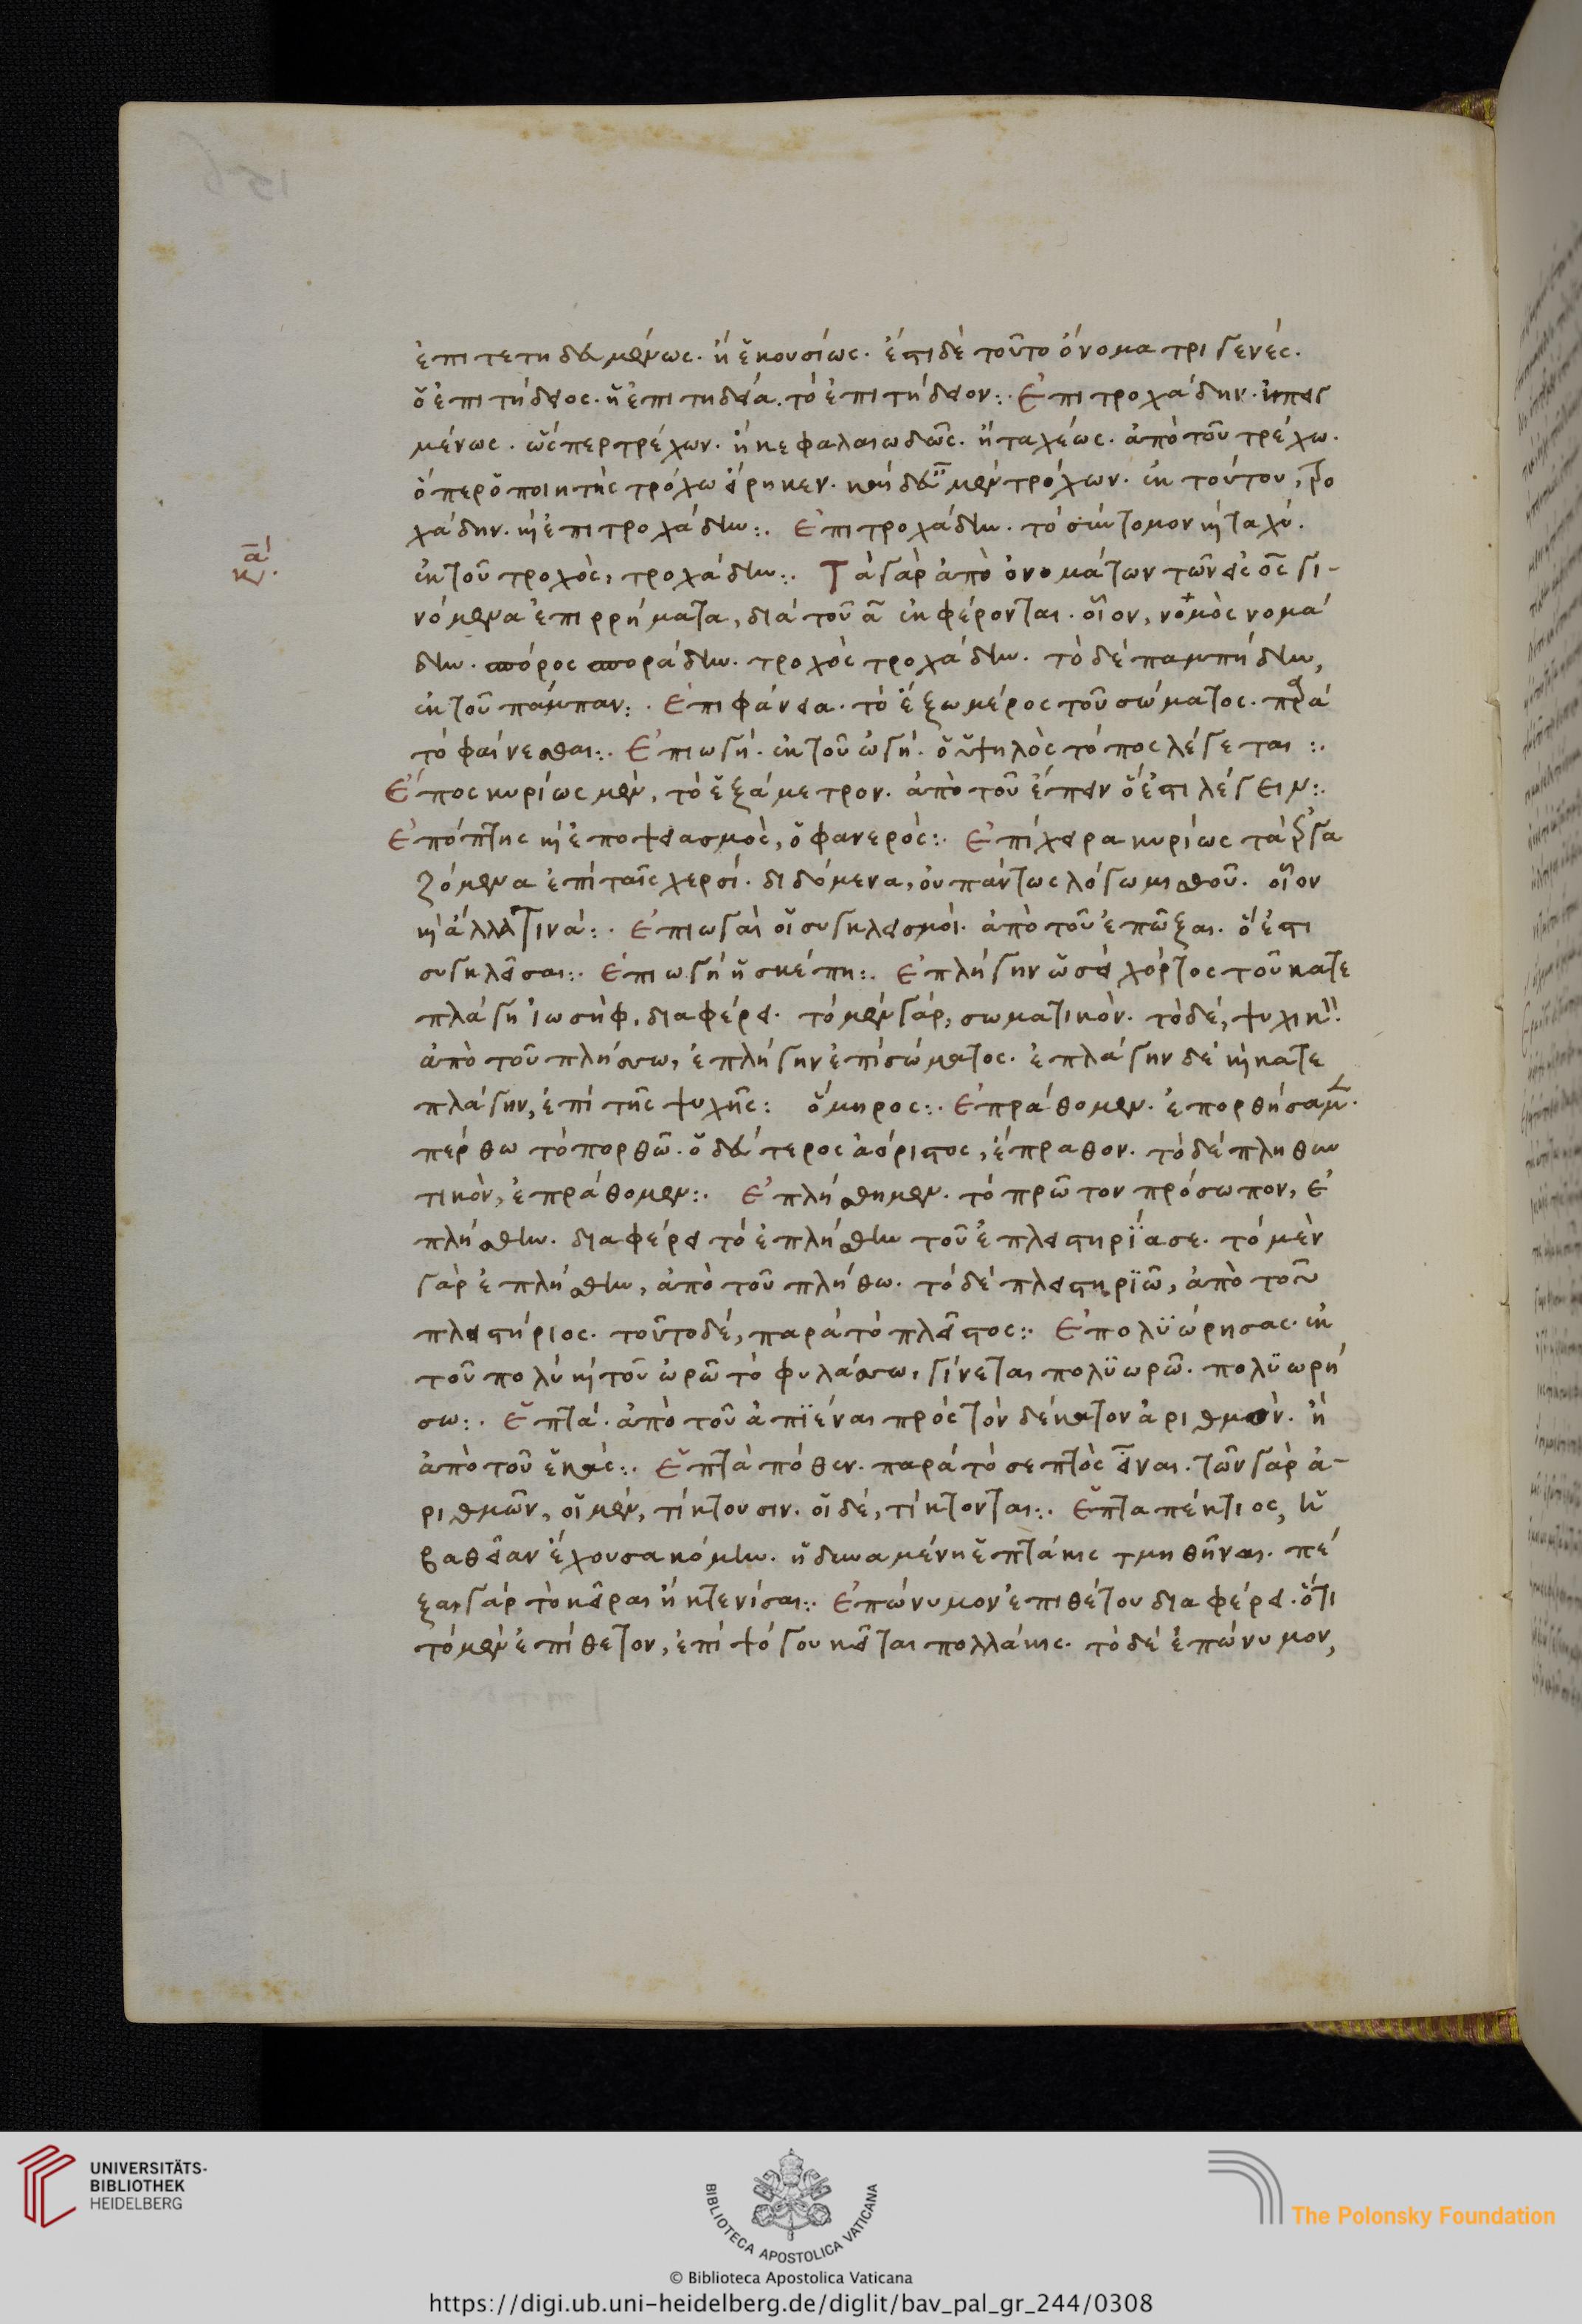 ἐπιτετηδευμένως. ἢ ἑκουσίως. ἔστι δὲ τοῦτο ὄνομα τριγενές.
ὁ ἐπιτήδειος. ἡ ἐπιτηδεία. τὸ ἐπιτήδειον:. Ἐπιτροχάδην.
μένως. ὥσπερ τρέχων. ἢ κεφαλαιωδῶς. ἢ ταχέως. ἀπὸ τοῦ τρέχω.
ὅπερ ὁ ποιητὴς τρόχω εἴρηκεν. μὲν τρόχων. ἐκ τούτου, τρο
χάδην. καὶ ἐπιτροχάδην:. Ἐπιτροχάδην. τὸ σύντομον καὶ ταχύ.
ἐκ τοῦ τροχὸς, τροχάδην:. Τὰ γὰρ ἀπὸ ὀνομάτων τῶν εἰς ος γι-
νόμενα ἐπιρρήματα, διὰ τοῦ α ἐκφέρονται. οἷον, νομὸς νομά
δην. σπόρος σποράδην. τροχὸς τροχάδην. τὸ δὲ παμπήδην,
ἐκ τοῦ πάμπαν:. Ἐπιφάνεια. τὸ ἔξω μέρος τοῦ σώματος. παρὰ
τὸ φαίνεσθαι:. Ἐπιωγή. ἐκ τοῦ ὠγή. ὁ ὑψηλὸς τόπος λέγεται:.
Ἔπος κυρίως μὲν, τὸ ἑξάμετρον. ἀπὸ τοῦ ἔπειν ὅ ἐστι λέγειν:.
Ἐπόπτης καὶ ἐποψιασμὸς, ὁ φανερός:. Ἐπίχειρα κυρίως τὰ ἐργα
ζόμενα ἐπὶ ταῖς χερσί. διδόμενα, οὐ πάντως λόγω μισθοῦ. οἷον
καὶ ἄλλα τινά:. Ἐπιωγαὶ οἱ συγκλεισμοί. ἀπὸ τοῦ ἐπῶξαι. ὅ ἐστι
συγκλεῖσαι:. Ἐπιωγὴ ἡ σκέπη:. Ἐπλήγην ὡσεὶ χόρτος τοῦ κατε
πλάγη Ἰωσὴφ, διαφέρει. τὸ μὲν γὰρ, σωματικόν. τὸ δὲ, ψυχικόν.
ἀπὸ τοῦ πλήσσω, ἐπλήγην ἐπὶ σώματος. ἐπλάγην δὲ καὶ κατε
πλάγην, ἐπὶ τῆς ψυχῆς: ὅμηρος:. Ἐπράθομεν. ἐπορθήσαμεν.
πέρθω τὸ πορθῶ. ὁ δεύτερος ἀόριστος, ἔπραθον. τὸ δὲ πληθυν
τικὸν, ἐπράθομεν:. Ἐπλήσθημεν. τὸ πρῶτον πρόσωπον, ἐ
πλήσθην. διαφέρει τὸ ἐπλήσθην τοῦ ἐπλειστηρίασε. τὸ μὲν
γὰρ ἐπλήσθην, ἀπὸ τοῦ πλήθω. τὸ δὲ πλειστηριῶ, ἀπὸ τοῦ
πλειστήριος. τοῦτο δὲ, παρὰ τὸ πλεῖστος:. Ἐπολυώρησας. ἐκ
τοῦ πολὺ καὶ τοῦ ὠρῶ τὸ φυλάσσω, γίνεται πολυωρῶ. πολυωρή
σω:. Ἑπτά. ἀπὸ τοῦ ἀπιέναι πρὸς τὸν δέκατον ἀριθμόν. ἢ
ἀπὸ τοῦ ἑκάς:. Ἑπτὰ πόθεν. παρὰ τὸ σεπτὸς εἶναι. τῶν γὰρ ἀ-
ριθμῶν, οἱ μὲν, τίκτουσιν. οἱ δὲ, τίκτονται:. Ἑπταπέκτιος, ἡ
βαθεῖαν ἔχουσα κόμην. ἡ δυναμένη ἑπτάκις τμηθῆναι. πέ
ξαι γὰρ τὸ κεῖραι ἢ κτενίσαι:. Ἐπώνυμον ἐπιθέτου διαφέρει. ὅτι
τὸ μὲν ἐπίθετον, ἐπὶ ψόγου κεῖται πολλάκις. τὸ δὲ ἐπώνυμον,
UNIVERSITÄTS-
BIBLIOTHEK
HEIDELBERG
BIBLIOTECA APOSTOLICA VATICANA
The Polonsky Foundation
© Biblioteca Apostolica Vaticana
https://digi.ub.uni-heidelberg.de/diglit/bav_pal_gr_244/0308